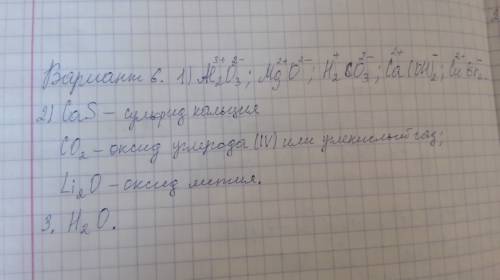 Вариант 6. 1) Al₂³⁺O₃²⁻; Mg²⁺O²⁻; H₂⁺CO₃²⁻; Ca²⁺(OH)₂⁻; Cu²⁺Br₂⁻
2) CaS – сульфид кальция
CO₂ – оксид углерода (IV) или углекислый газ;
Li₂O – оксид лития.
3. H₂O.